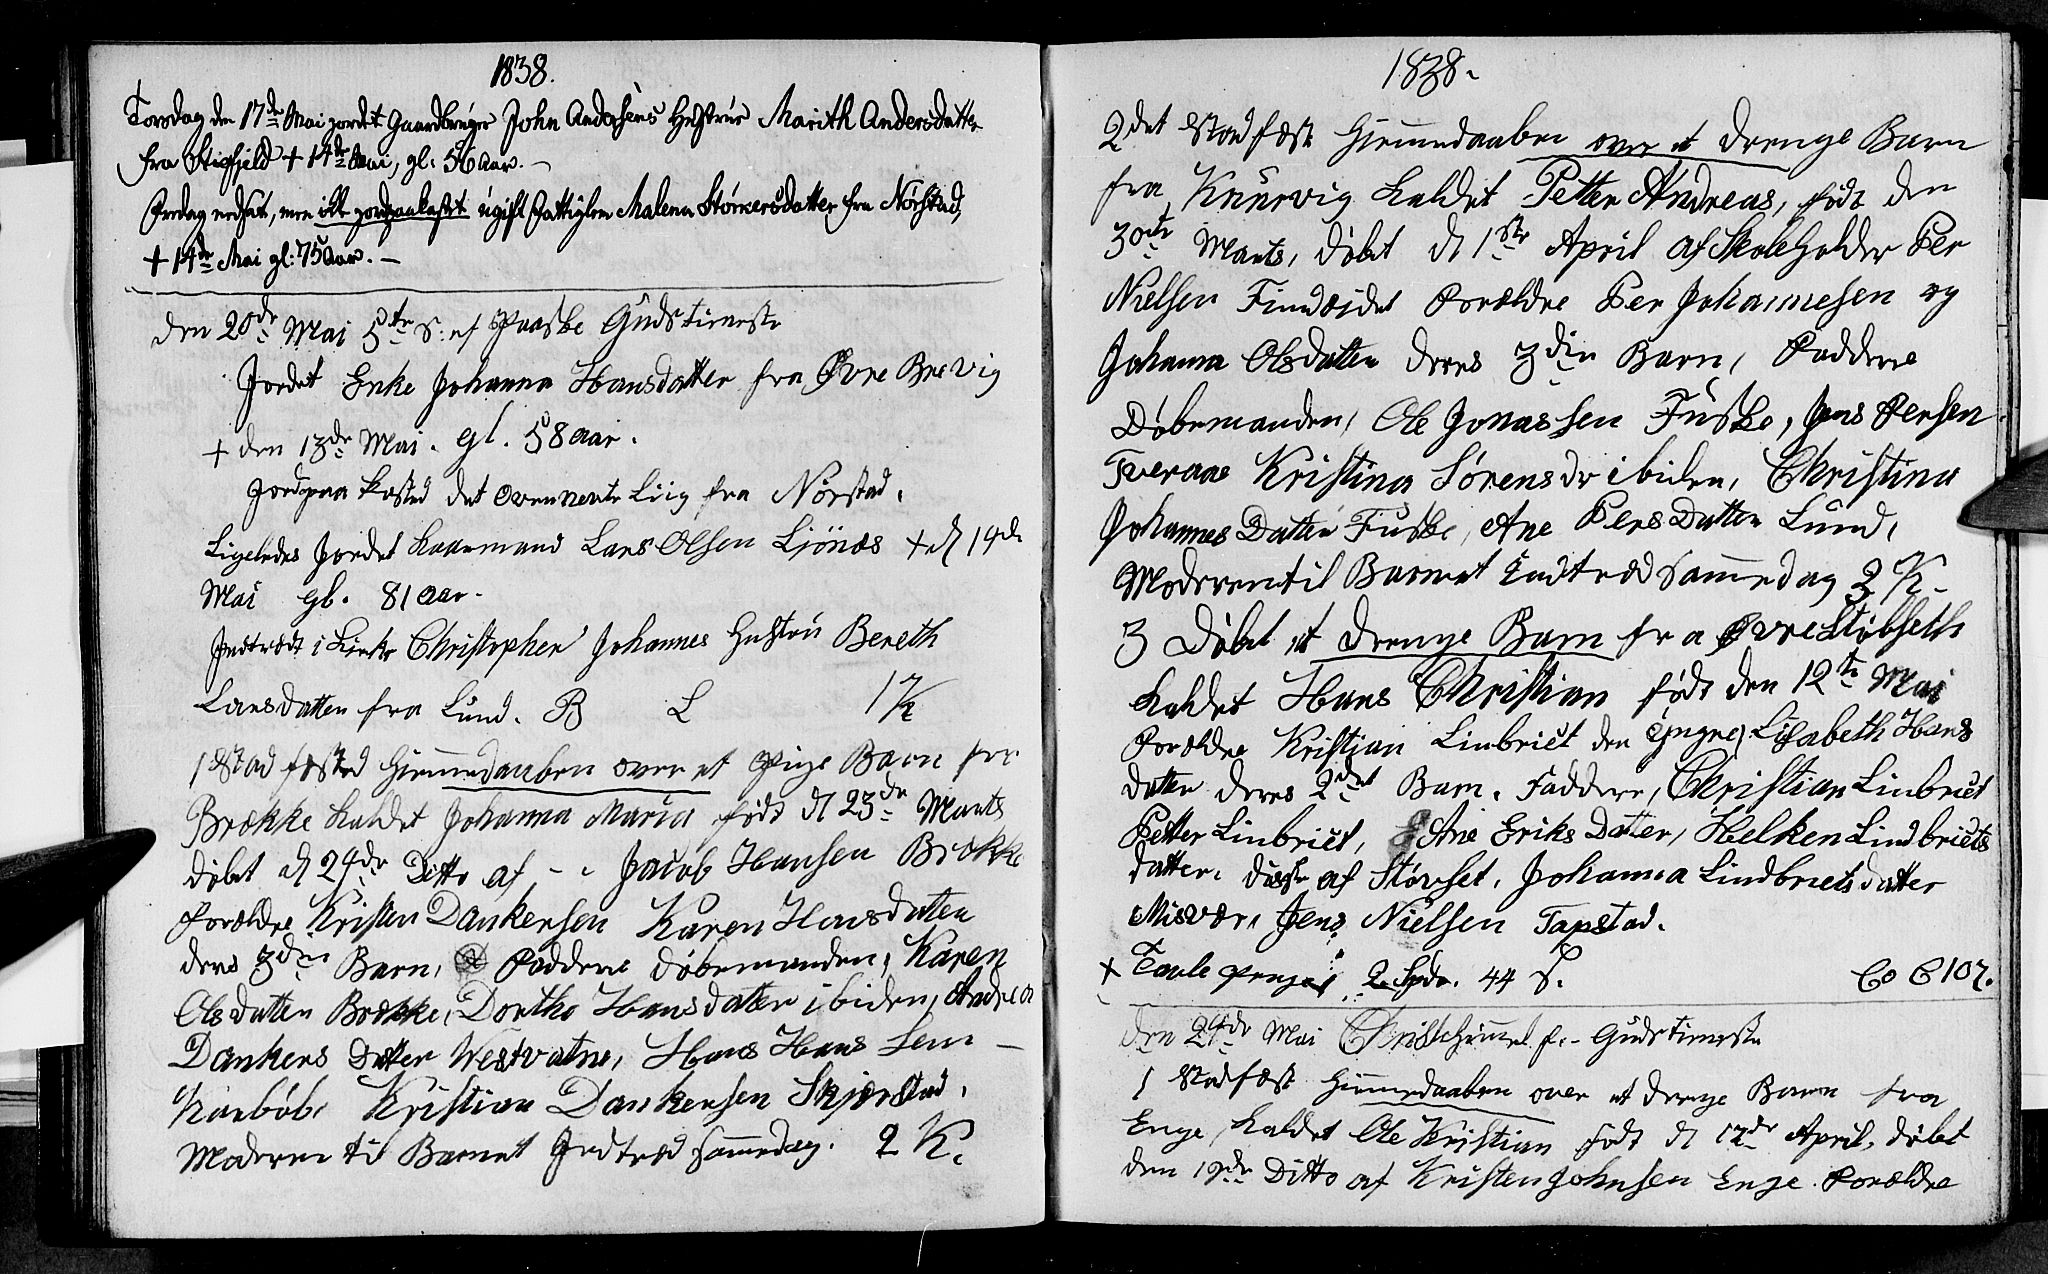 1838.
Torsdag den 17de Mai jordet Gaardbruger John Andersens Hustrue Marith Andersdatter
fra Stigfjeld + 14de Mai, gl: 56 Aar. –
Fredag nedsat, men ikke jordpaakastet ugift Fattiglem Malena Størkersdatter fra Nørstad,
+ 14de Mai gl: 75 Aar. –
den 20de Mai 5te S: ef Paaske Gudstieneste
Jordet Enke Johanna Hansdatter fra Øvre Brevig
+ den 13de Mai. gl. 58 aar.
Jordpaa kasted det ovennente Liig fra Nørstad.
Ligeledes Jordet Kaarmand Lars Olsen Ljönæs + d 14de
Mai gl. 81 aar.
Indtrædt i Kirke Christopher Johannes Hustru Bereth
Larsdatter fra Lund. B L 1 K
1 Stadfæsted Hiemmedaaben over et Pige Barn fra
Brække kaldet Johanna Maria født d 23de Marts
døbt d 24de Ditto af – Jacob Hansen Brække
Forældre Kristen Dankersen Karen Hansdatter
deres 3die Barn, Faddere Døbemanden, Karen
Olsdatter Brække, Dorthe Hansdatter ibiden, Andrea
Dankers Datter Westvatne, Hans Hans Sen –
Karbøl Kristian Dankersen Skjerstad.
Moderen til Barnet Indtræd sammedag. 2 K.
1838.
2det Stadfæst Hiemmedaaben over et Drenge Barn
fra Knurvig kaldet Petter Andreas, født den
30te Marts, døbt d 1ste April af Skoleholder Per
Nielsen Fineidet Forældre Per Johannesen og
Johanna Olsdatter deres 3die Barn, Faddere
Døbemanden, Ole Jonassen Fuske, Jens Persen
Tveraae Kristina Sørensdr ibiden, Christina
Johannes Datter Fuske, Ane Pers Datter Lund,
Moderen til Barnet Indtræd sammedag 3 K.
3 Døbt et Drenge Barn fra Øvre Støbseth
kaldet Hans Christian født den 12te Mai
Forældre Kristian Linbriet den Yngre, Lisabeth Hans
datter deres 2det Barn. Faddere, Christian Linbriet
Petter Linbriet, Ane Eriks Datter, Helken Lindbriets
datter, disse af Støvset. Johanna Lindbriets datter
Misvær, Jens Nielsen Tapstad.
+ Tavle penge 2 Spdr. 44 S. Co C 107.
den 24de Mai Christi Himmel f. – Gudstieneste
1 Stadfæst Hiemmedaaben over et drenge Barn fra
Enge, kaldet Ole Kristian født d 12de April, døbt
den 19de Ditto af Kristen Johnsen Enge. Forældre